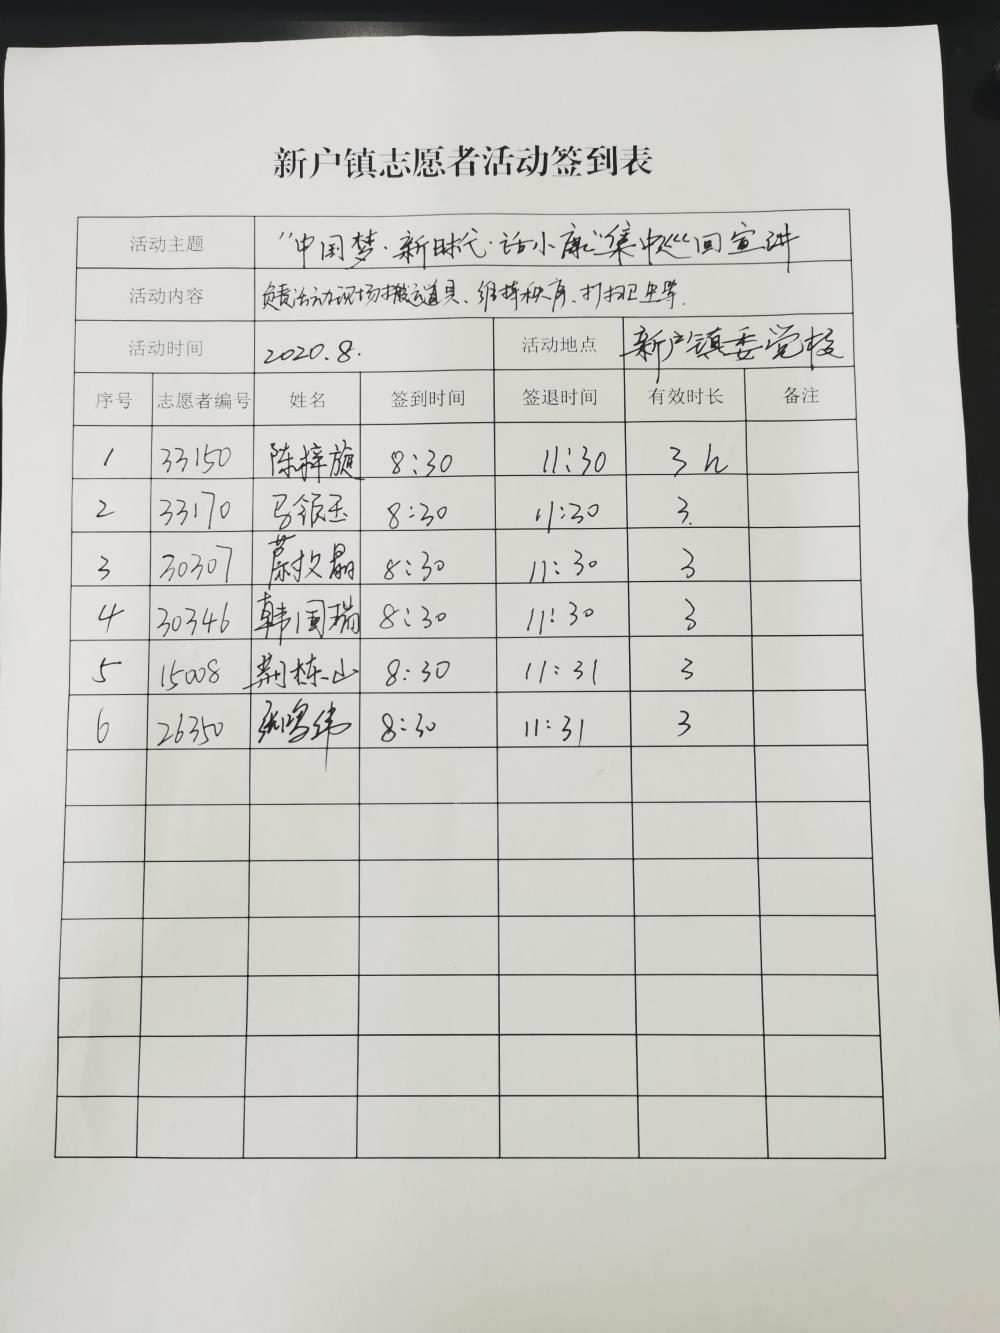 新户镇志愿者活动签到表
活动主题 "中国梦·新时代·话小康"集中巡回宣讲
活动内容 负责活动现场搬运道具、维持秩序、打扫卫生等.
活动时间 2020.8. 活动地点 新户镇委党校
序号 志愿者编号 姓名 签到时间 签退时间 有效时长 备注
1 33150 陈梓旋 8:30 11:30 3h
2 33170 马领玉 8:30 11:30 3.
3 30307 8:30 11:30 3
4 30346 韩国瑞 8:30 11:30 3
5 15008 荆栋山 8:30 11:31 3
6 26350 张鸣纬 8:30 11:31 3